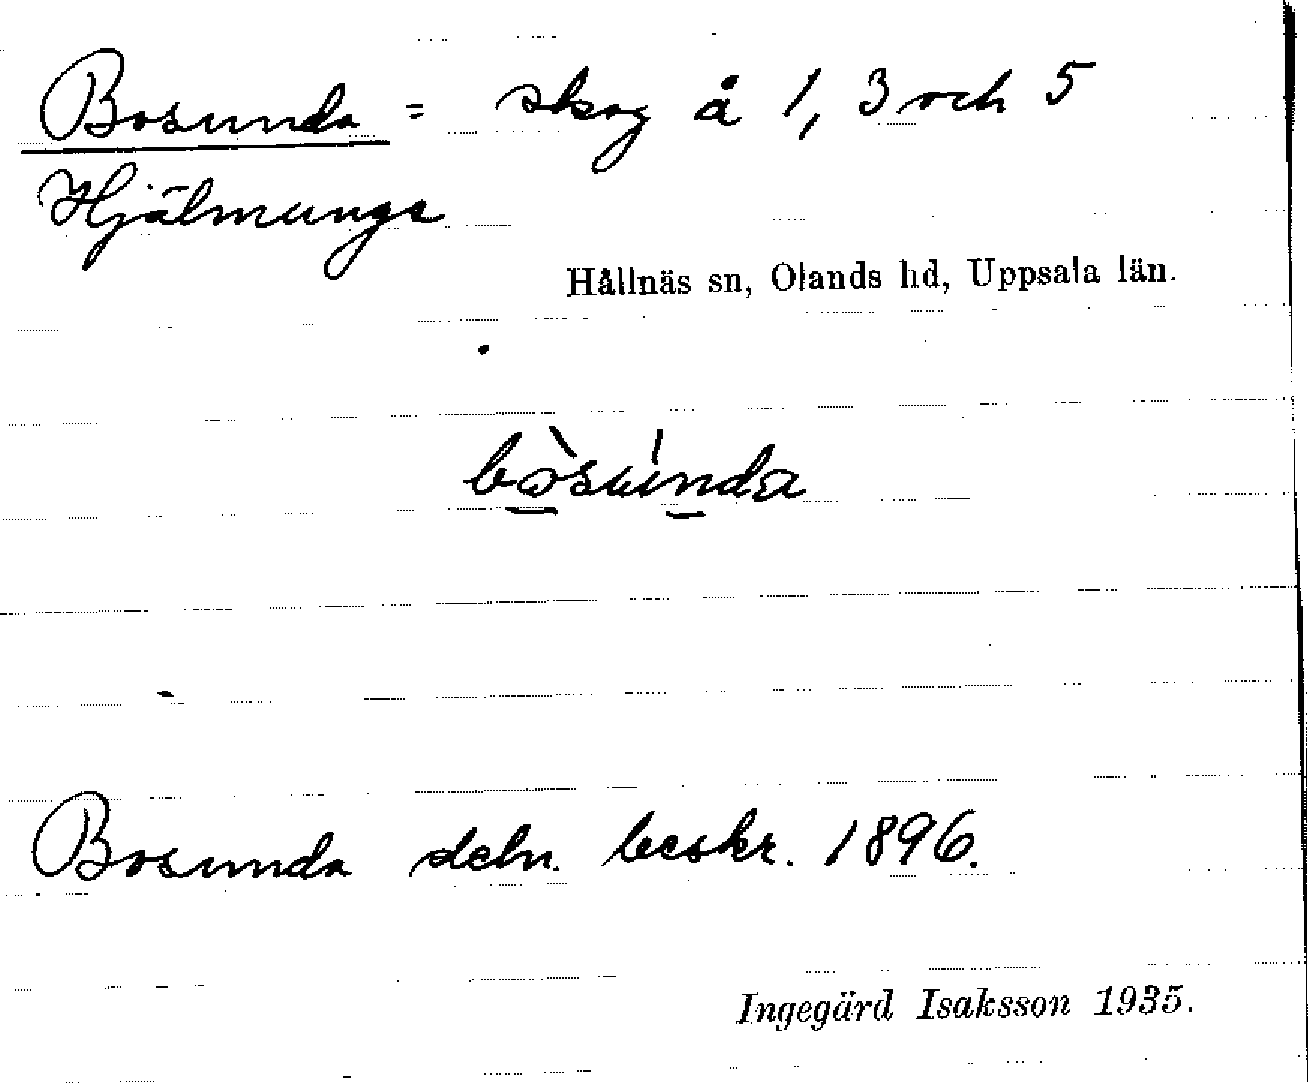 Bosunda = skog å 1, 3 och 5
Hjälmunge
Hållnäs sn, Olands hd, Uppsala län.
bòsúnda
Bosunda dcbn. beskr. 1896.
Ingegärd Isaksson 1935.